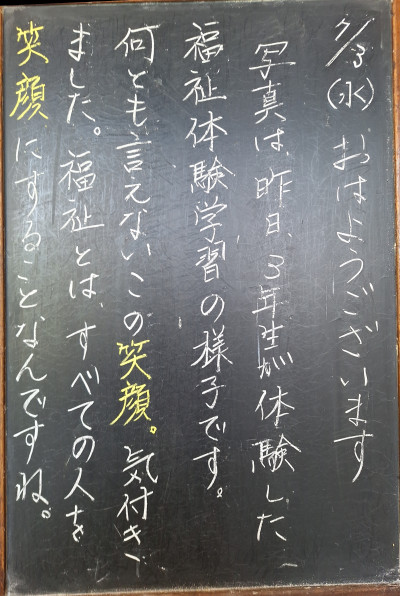 7/3(水) おはようございます
写真は、昨日、3年生が体験した
福祉体験学習の様子です。
何とも言えないこの笑顔。気付き
ました。福祉とは、すべての人を
笑顔にすることなんですね。